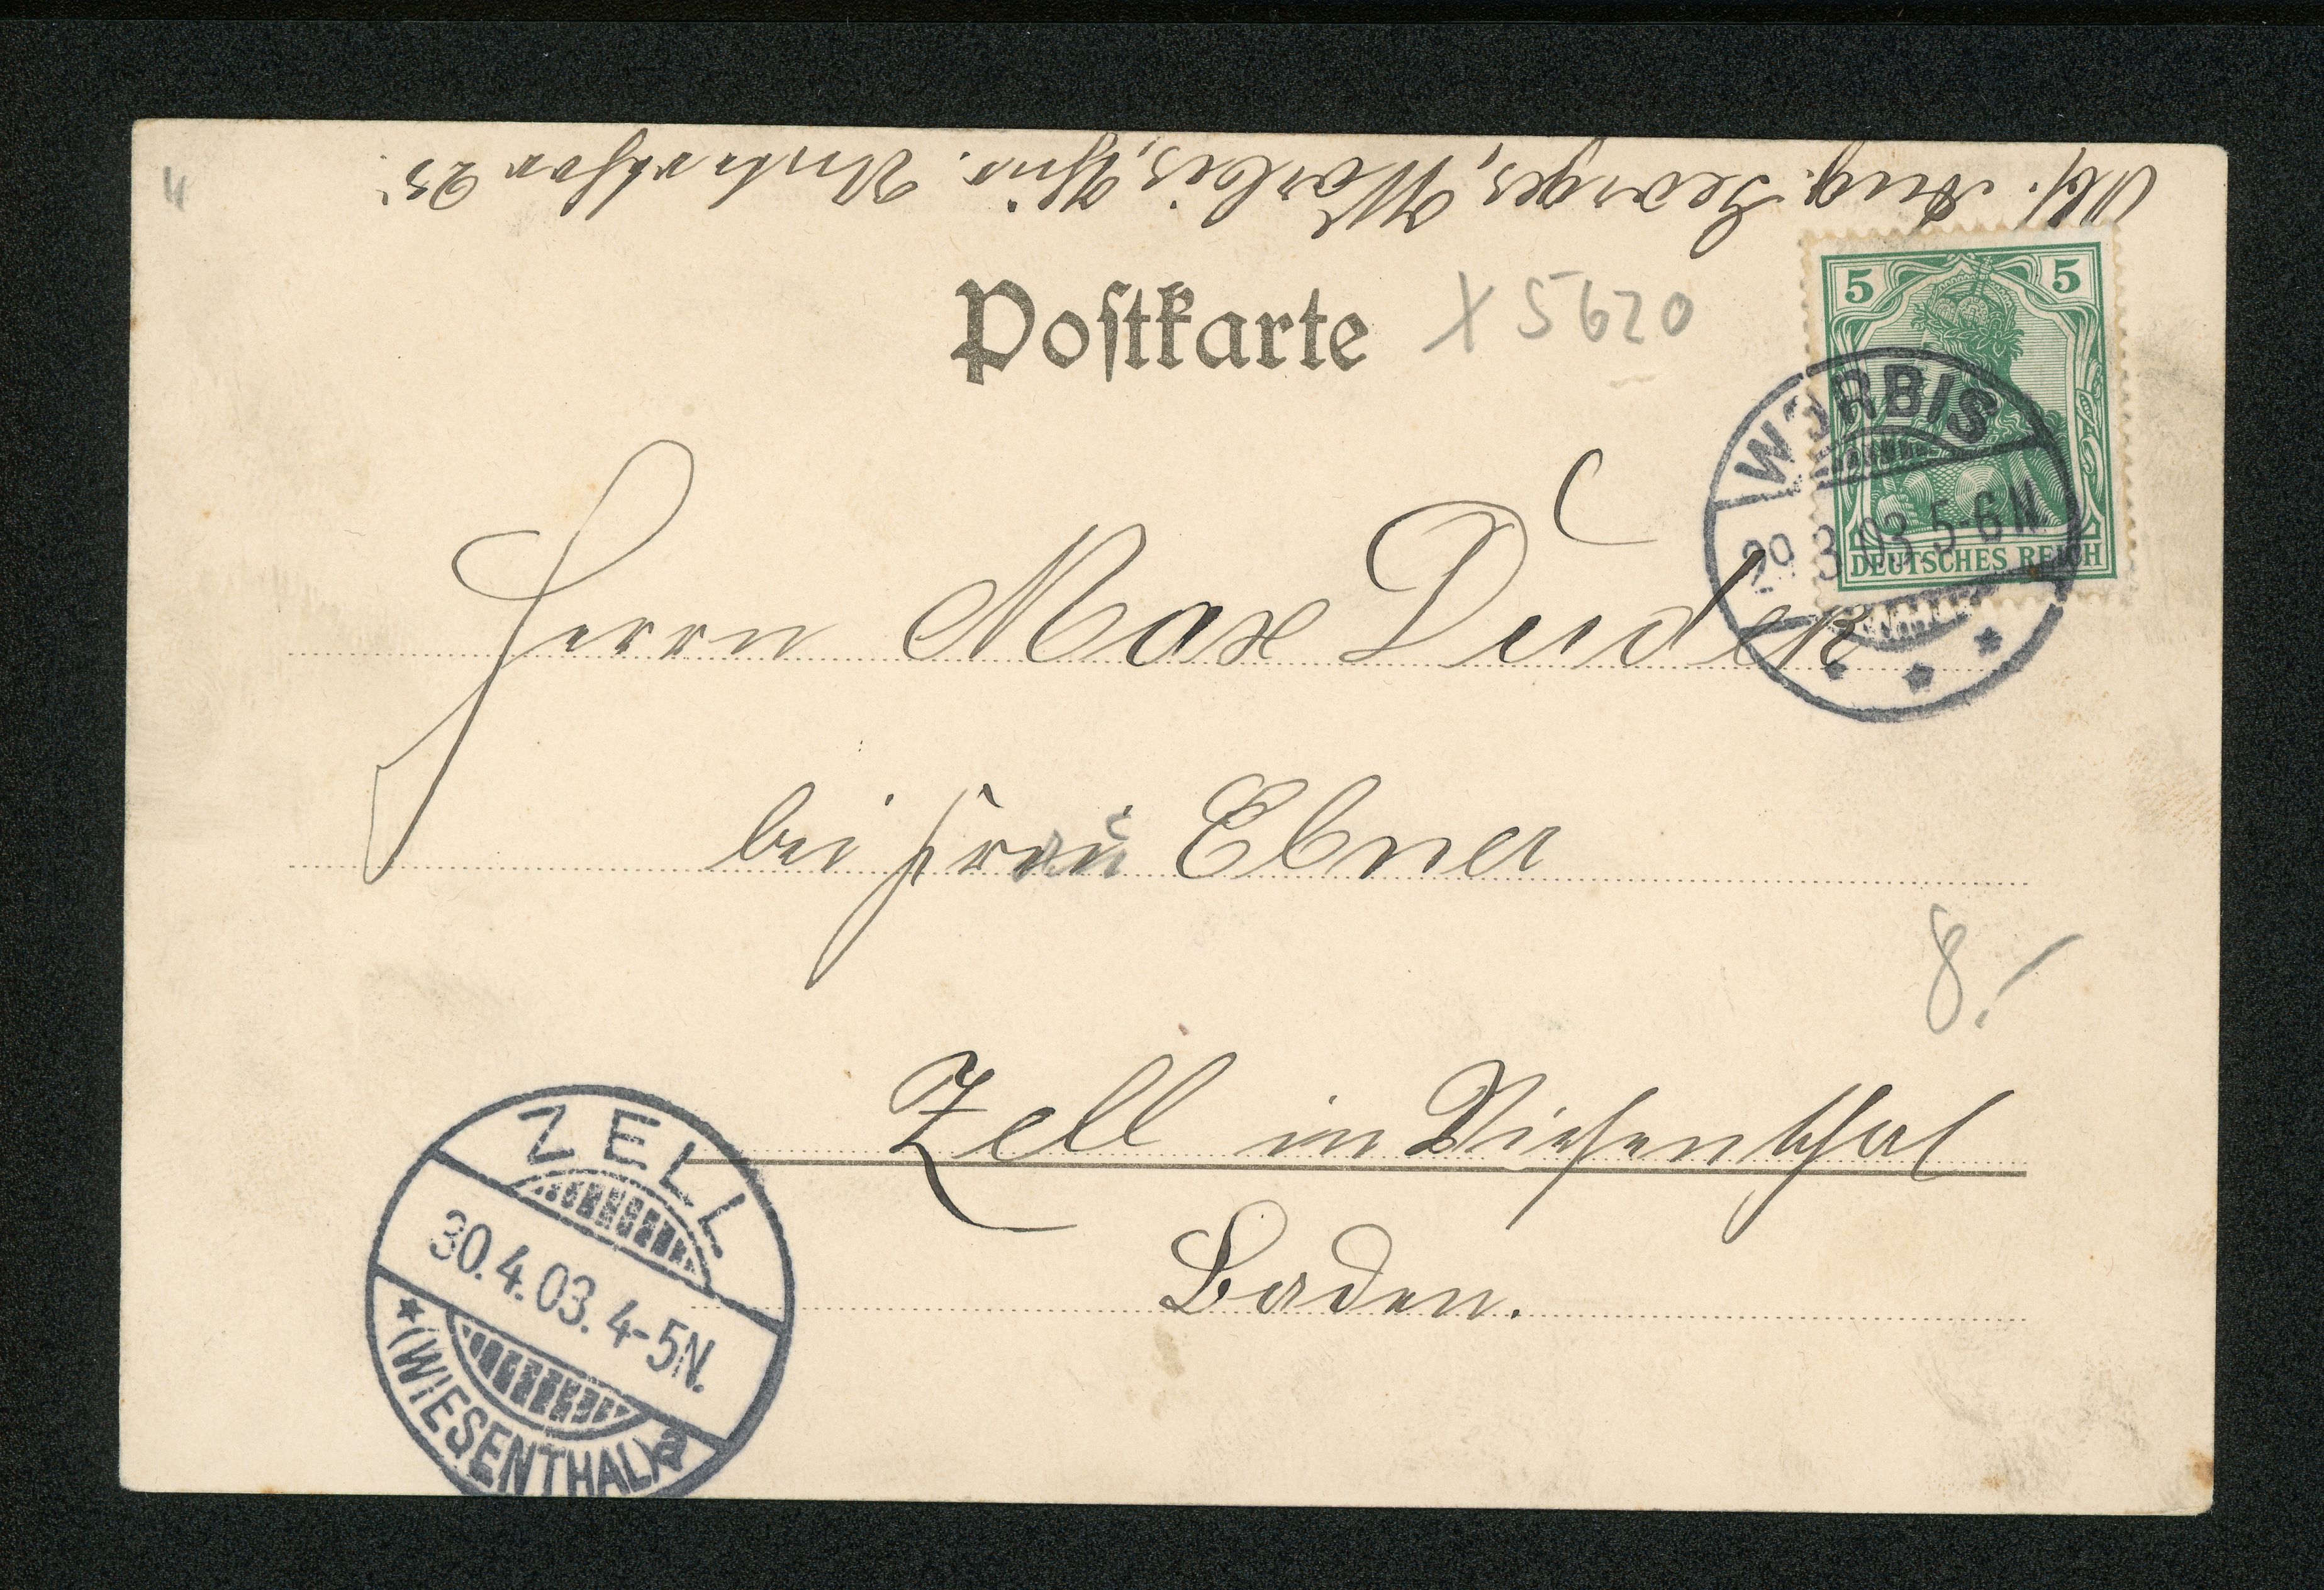 Abs. Aug. Georges, Worbis, Thür.
4
Postkarte
X 5620
5 5
DEUTSCHES REICH
WORBIS
29 3 03 5-6 N.
Herrn Max Dudek
bei Frau Ebner
8.-
Zell im Wiesenthal
Baden.
ZELL
30.4.03. 4-5N.
* (WIESENTHAL) a